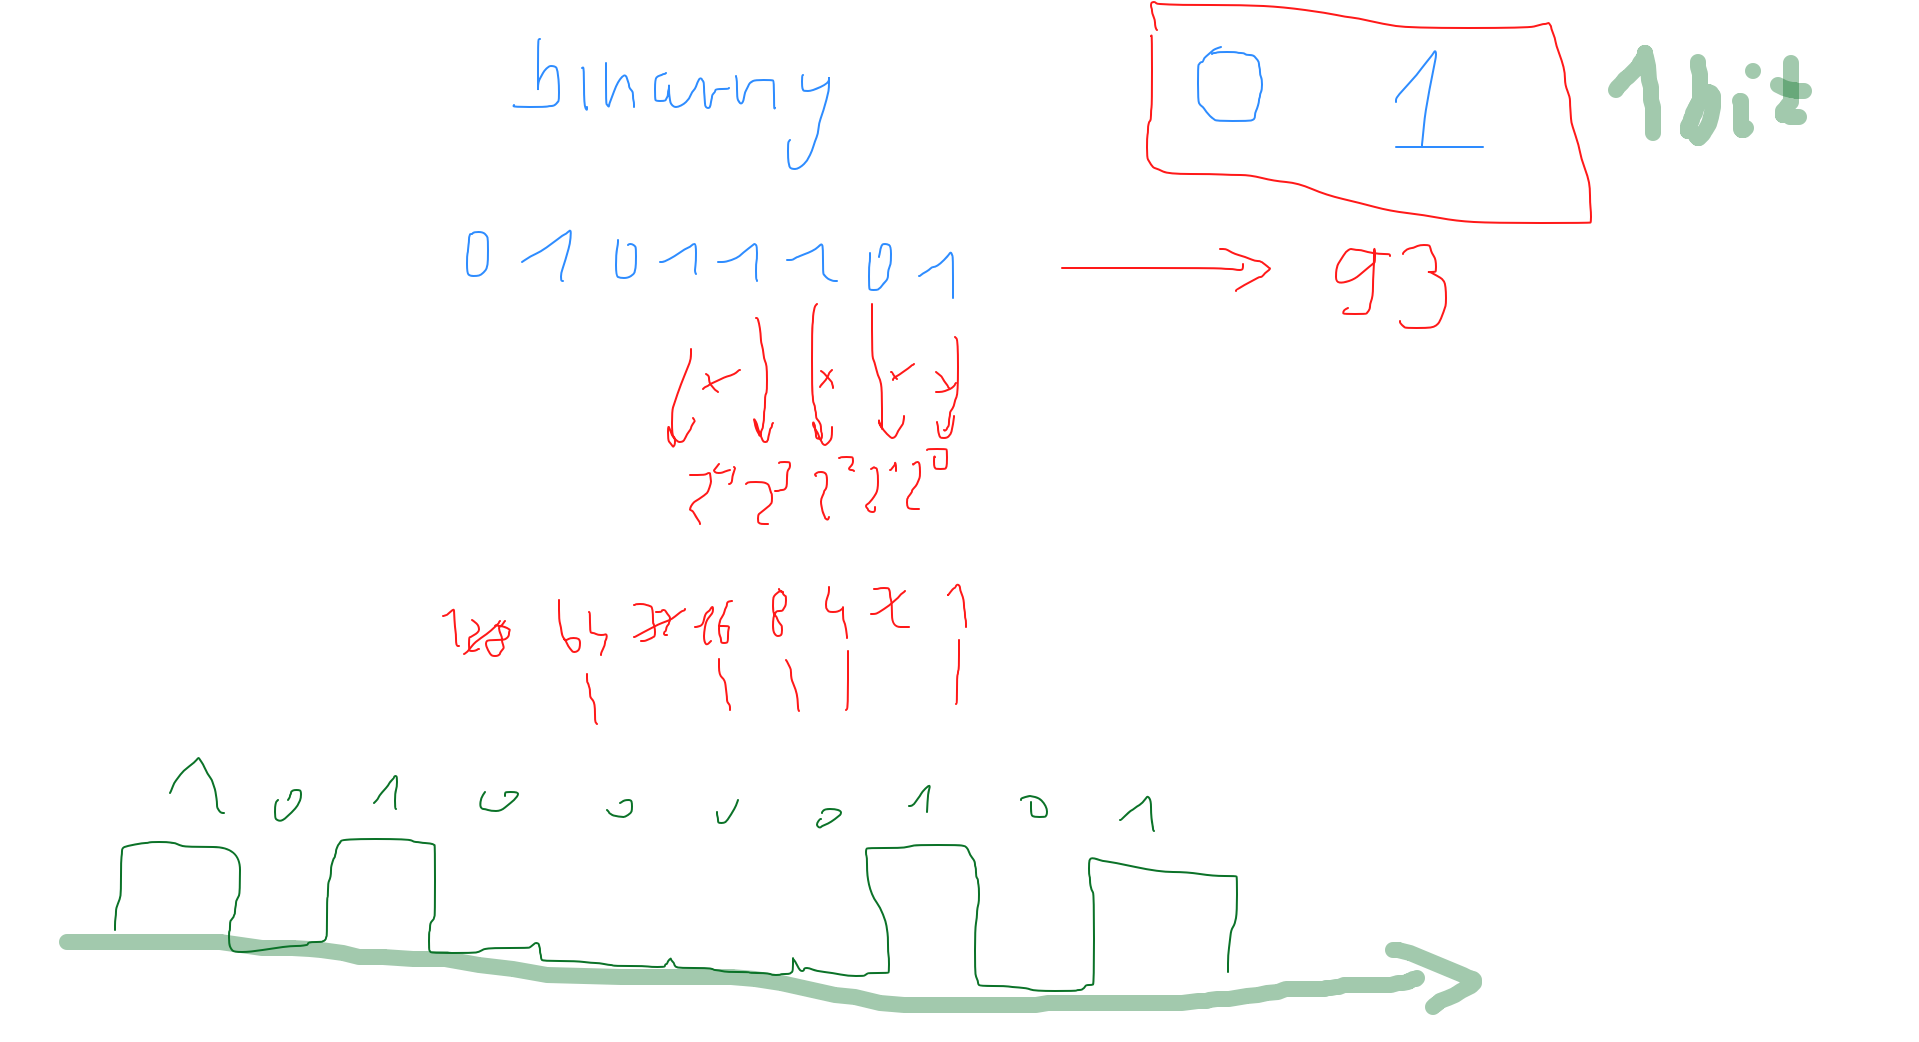 binarry 0 1 1bit
0 1 0 1 1 1 0 1 → 93
x x x x
2⁴ 2³ 2² 2¹ 2⁰
128 64 32 16 8 4 2 1
1 0 1 0 0 0 0 1 0 1